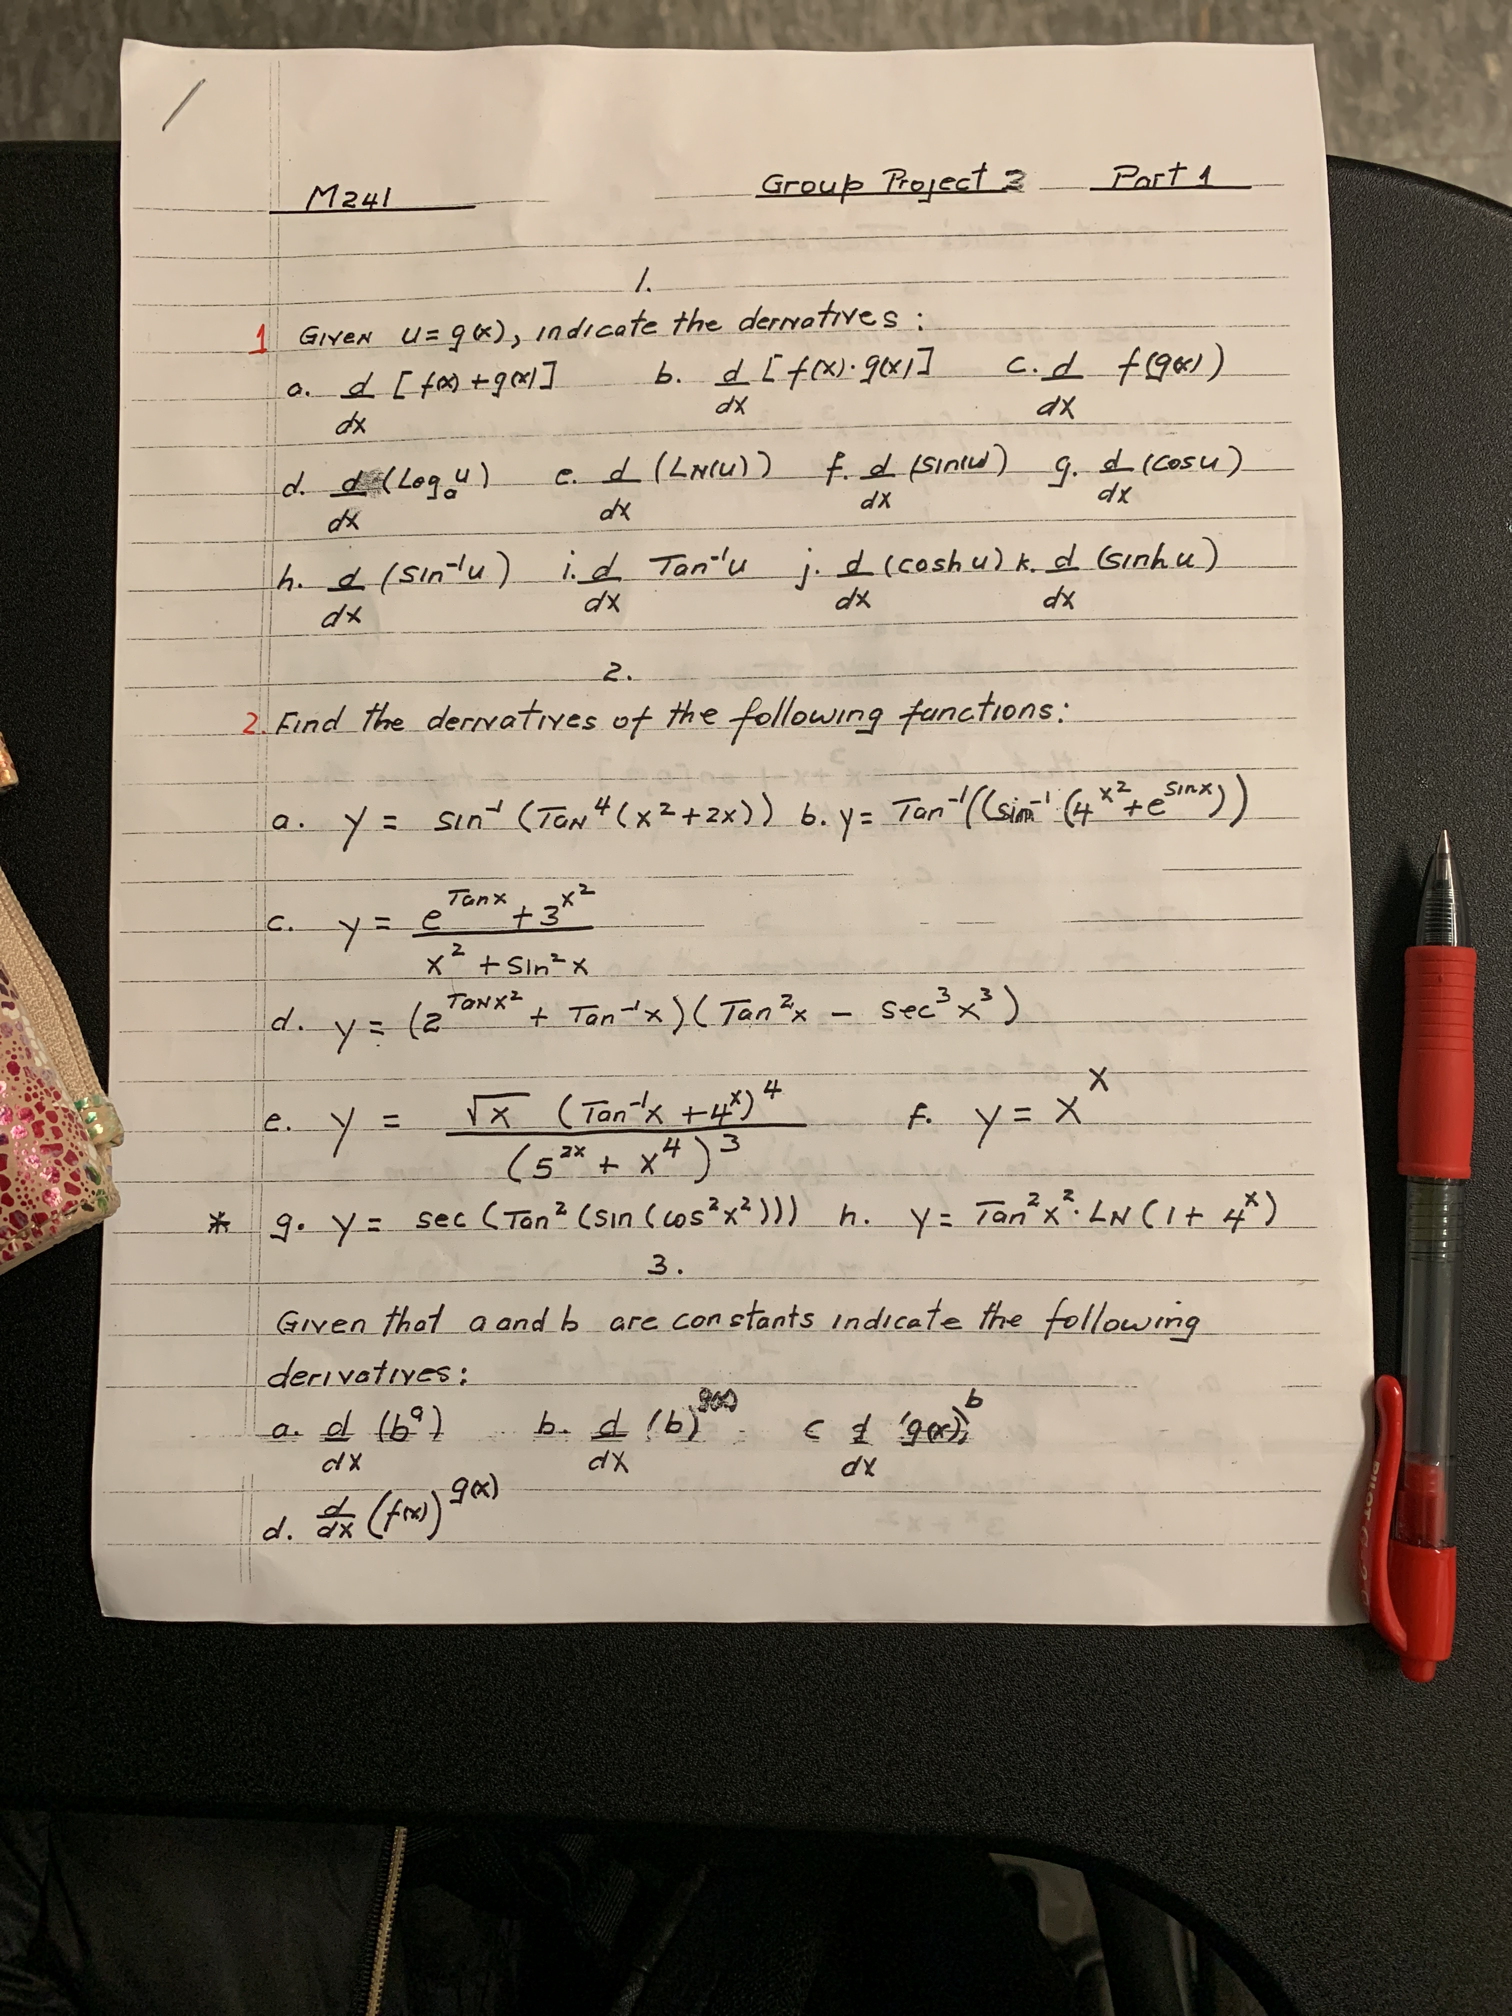 M241 Group Project 3 Part 1
1.
1 Given u = g(x), indicate the derivatives :
a. d/dx [f(x) + g(x)] b. d/dx [f(x)·g(x)] c. d/dx f(g(x))
d. d/dx (Logₐ u) e. d/dx (LN(u)) f. d/dx (sin(u)) g. d/dx (cos u)
h. d/dx (sin⁻¹u) i. d/dx Tan⁻¹u j. d/dx (cosh u) k. d/dx (sinh u)
2.
2. Find the derivatives of the following functions:
a. y = sin⁻¹ (TAN⁴ (x² + 2x)) b. y = Tan⁻¹((sin⁻¹ (4^x² + e^sinx))
c. y = (e^Tanx + 3^x²) / (x² + sin²x)
d. y = (2^TANx² + Tan⁻¹x) (Tan²x − sec³x³)
e. y = √x (Tan⁻¹x + 4^x)⁴ / (5^2x + x⁴)³ f. y = x^x
* g. y = sec (Tan² (sin (cos²x²))) h. y = Tan²x²· LN (1 + 4^x)
3.
Given that a and b are constants indicate the following
derivatives:
a. d/dx (b^a) b. d/dx (b)^g(x) c d/dx (g(x))^b
d. d/dx (f(x))^g(x)